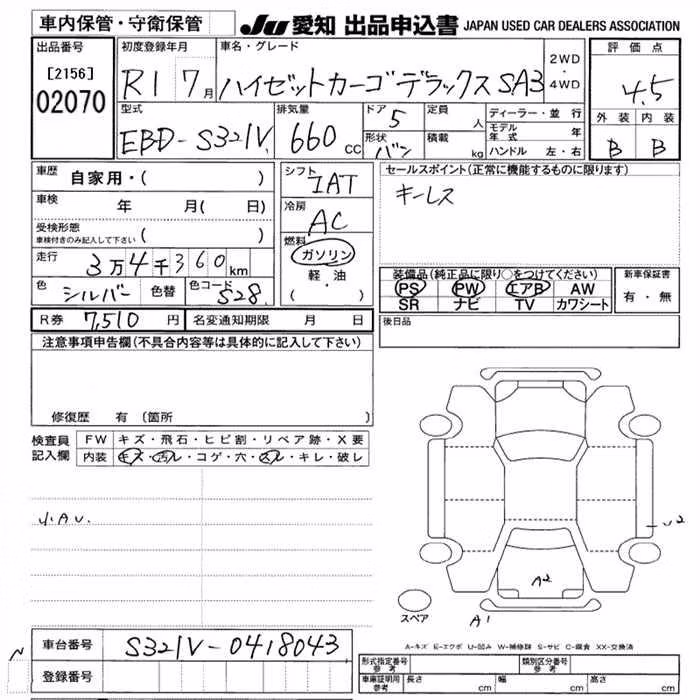 車内保管・守衛保管
JU 愛知 出品申込書 JAPAN USED CAR DEALERS ASSOCIATION
出品番号
[2156]
02070
初度登録年月
R1 7月
車名・グレード
ハイゼットカーゴデラックスSAⅢ
2WD
・
4WD
評価点
4.5
外装 内装
B B
型式
EBD-S321V
排気量
660cc
ドア 5
形状 バン
定員 人
積載 kg
ディーラー・並行
モデル年式 年
ハンドル 左・右
車歴 自家用・( )
車検 年 月( 日)
受検形態
車検付きのみ記入して下さい ( )
走行 3万4千360km
色 シルバー 色替 色コード S28
シフト
IAT
冷房
AC
燃料
ガソリン
軽・油
( )
セールスポイント(正常に機能するものに限ります)
キーレス
装備品(純正品に限り○をつけてください)
PS PW エアB AW
SR ナビ TV カワシート
新車保証書
有・無
R券 7,510円 名変通知期限 月 日
後日品
注意事項申告欄(不具合内容等は具体的に記入して下さい)
修復歴 有 (箇所 )
検査員
記入欄
FW キズ・飛石・ヒビ割・リペア跡・X要
内装 キズ・汚レ・コゲ・穴・スレ・キレ・破レ
小A,U.
U2
A2
スペア
A1
A-キズ E-エクボ U-凹み W-補修跡 S-サビ C-腐食 XX-交換済
N
車台番号 S321V-0418043
登録番号
形式指定番号
参考
類別区分番号
参考
車庫証明用
参考
長さ cm 幅 cm 高さ cm